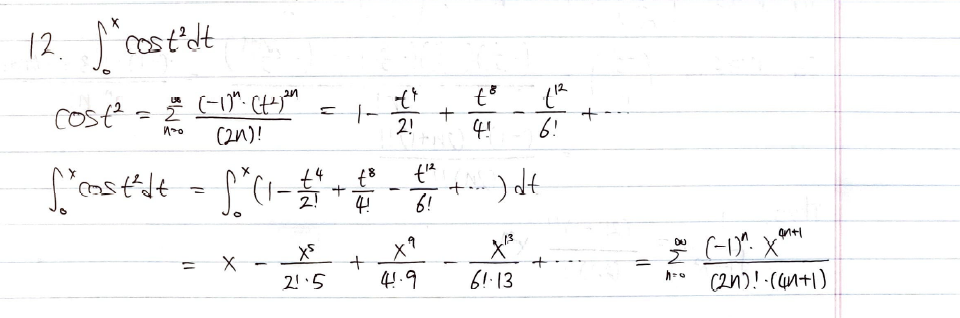 12. ∫₀ˣ cos t² dt
cos t² = Σ_{n=0}^{∞} (-1)ⁿ·(t²)²ⁿ / (2n)! = 1 - t⁴/2! + t⁸/4! - t¹²/6! + ...
∫₀ˣ cos t² dt = ∫₀ˣ (1 - t⁴/2! + t⁸/4! - t¹²/6! + ...) dt
= x - x⁵/(2!·5) + x⁹/(4!·9) - x¹³/(6!·13) + ... = Σ_{n=0}^{∞} (-1)ⁿ·x⁴ⁿ⁺¹ / ((2n)!·(4n+1))